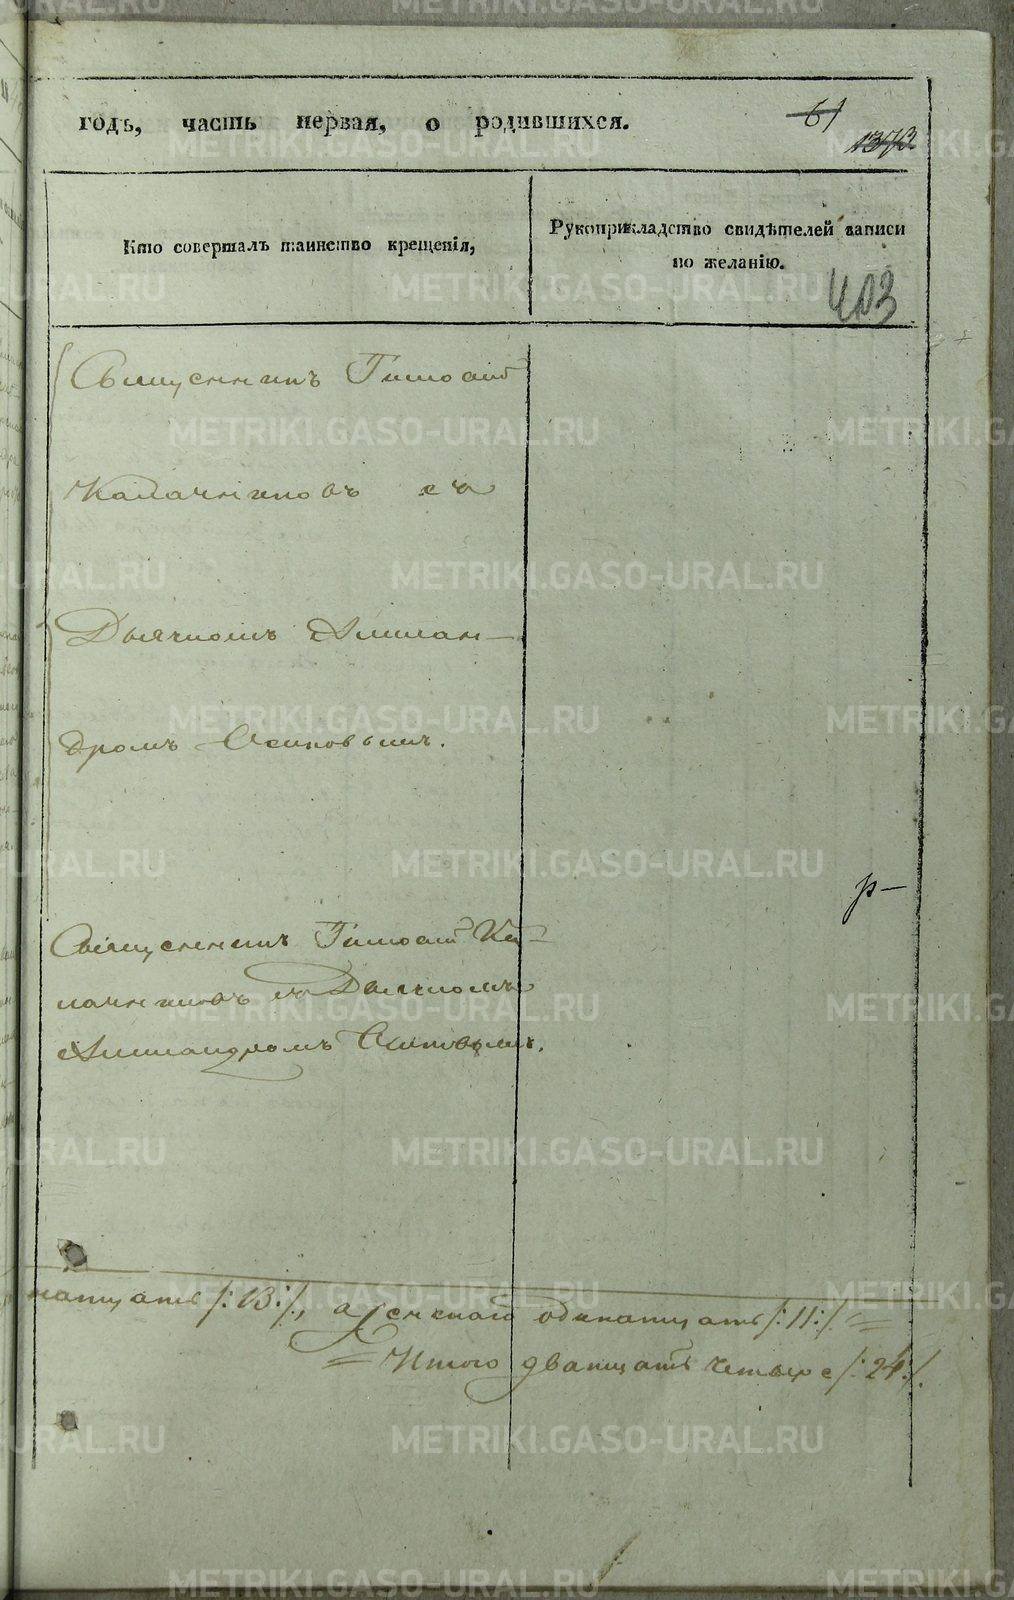 годъ, часть первая, о родившихся.
61
1373
Кто совершалъ таинство крещенія,
Рукоприкладство свидѣтелей записи
по желанію.
403
Священникъ Тимофей
Калачниковъ съ
Дьячкомъ Алексан-
дромъ Осиповымъ.
р-
Священникъ Тимофей Ка-
лачниковъ съ Дьячкомъ
Александромъ Осиповымъ.
натцать /:13:/, а женскаго одинатцать /:11:/. =
= Итого дватцать четыре /:24:/.
METRIKI.GASO-URAL.RU